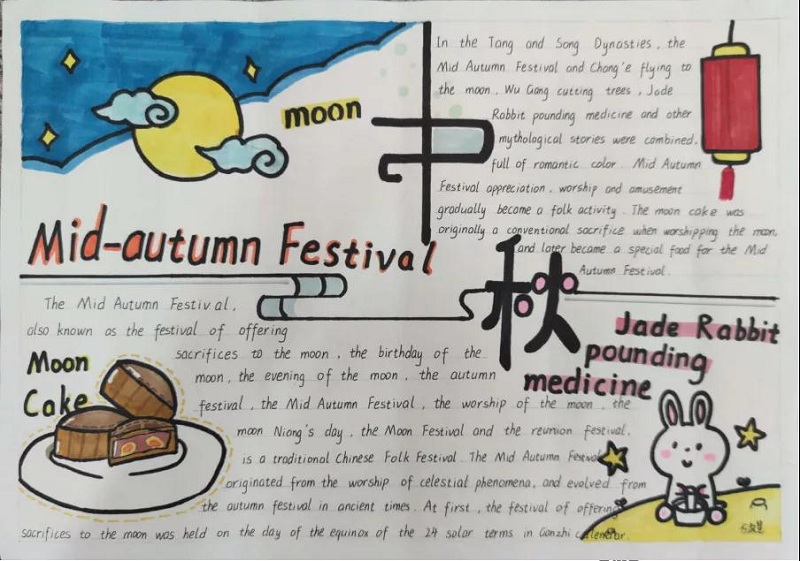 moon
中
In the Tang and Song Dynasties, the
Mid Autumn Festival and Chang'e flying to
the moon, Wu Gang cutting trees, Jade
Rabbit pounding medicine and other
mythological stories were combined,
full of romantic color. Mid Autumn
Festival appreciation, worship and amusement
gradually become a folk activity. The moon cake was
originally a conventional sacrifice when worshipping the moon,
and later became a special food for the Mid
Autumn Festival.
Mid-autumn Festival
秋
The Mid Autumn Festival,
also known as the festival of offering
sacrifices to the moon, the birthday of the
moon, the evening of the moon, the autumn
festival, the Mid Autumn Festival, the worship of the moon, the
moon Niong's day, the Moon Festival and the reunion festival,
is a traditional Chinese Folk Festival. The Mid Autumn Festival
originated from the worship of celestial phenomena, and evolved from
the autumn festival in ancient times. At first, the festival of offering
sacrifices to the moon was held on the day of the equinox of the 24 solar terms in Ganzhi calendar.
Moon
Cake
Jade Rabbit
pounding
medicine